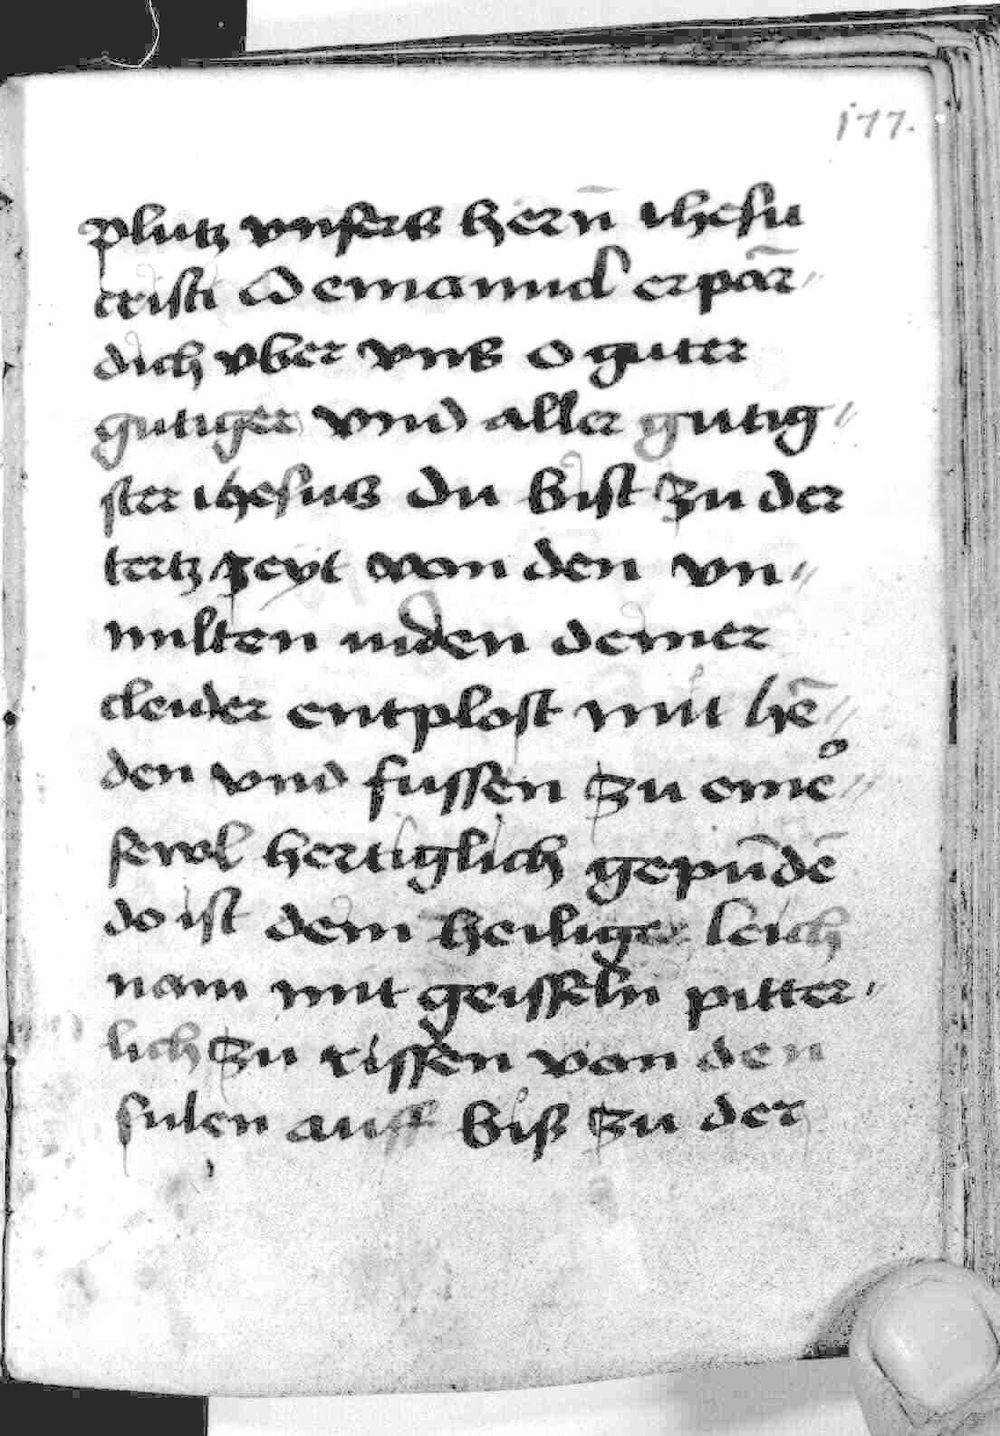 177.
plutz vnsers hern̄ ihesu
cristi O emanuel erpar̄
dich vber vns O guter
gutiger vnd aller gutig〃
ster ihesus du bist zu der
tertz zeyt von den vn〃
milten iuden deiner
cleider entplost mit hē〃
den vnd fussen zu eineͦ〃
sewl hertiglich gepūdē
do ist dein heiliger leich
nam mit geisseln pitter〃
lich zu rissen von den
sulen auff biß zu der